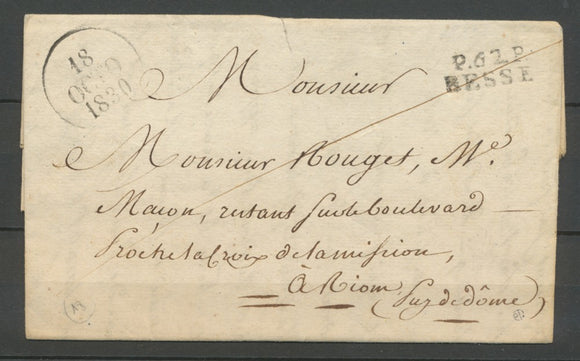 18
OCTO
1830
P.62.P
BESSE
Monsieur
Monsieur Rouget, Me.
Maçon, restant sur le boulevard
Proche la Croix de la mission,
à Riom (Puy de dôme)